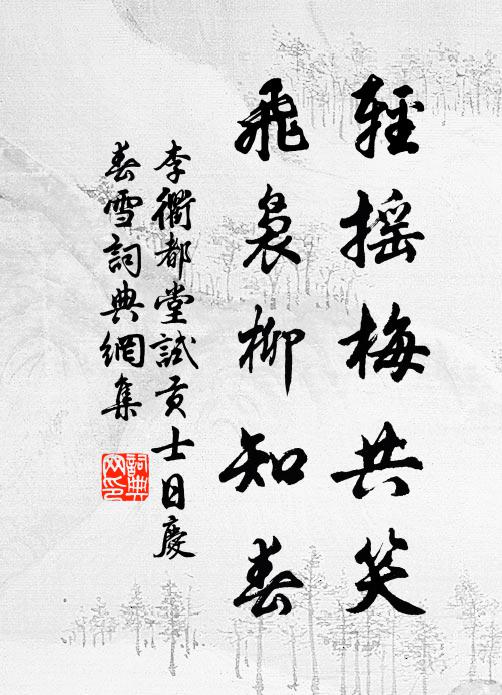 輕搖梅共笑
飛裊柳知春
李衢都堂試貢士日慶
春雪詞典網集
詞典
网印